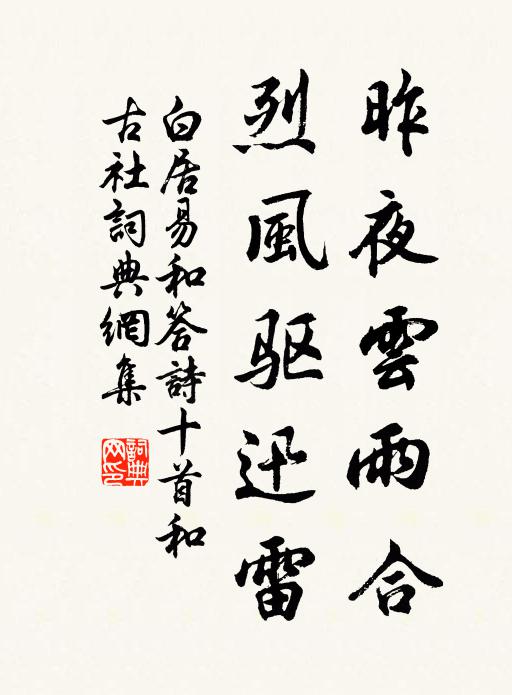 昨夜雲雨合
烈風驱迅雷
白居易和答詩十首和
古社詞典網集
詞典
网印